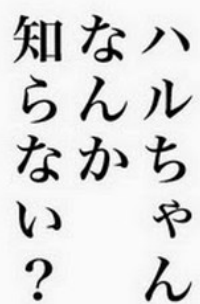 ハルちゃん
なんか
知らない？